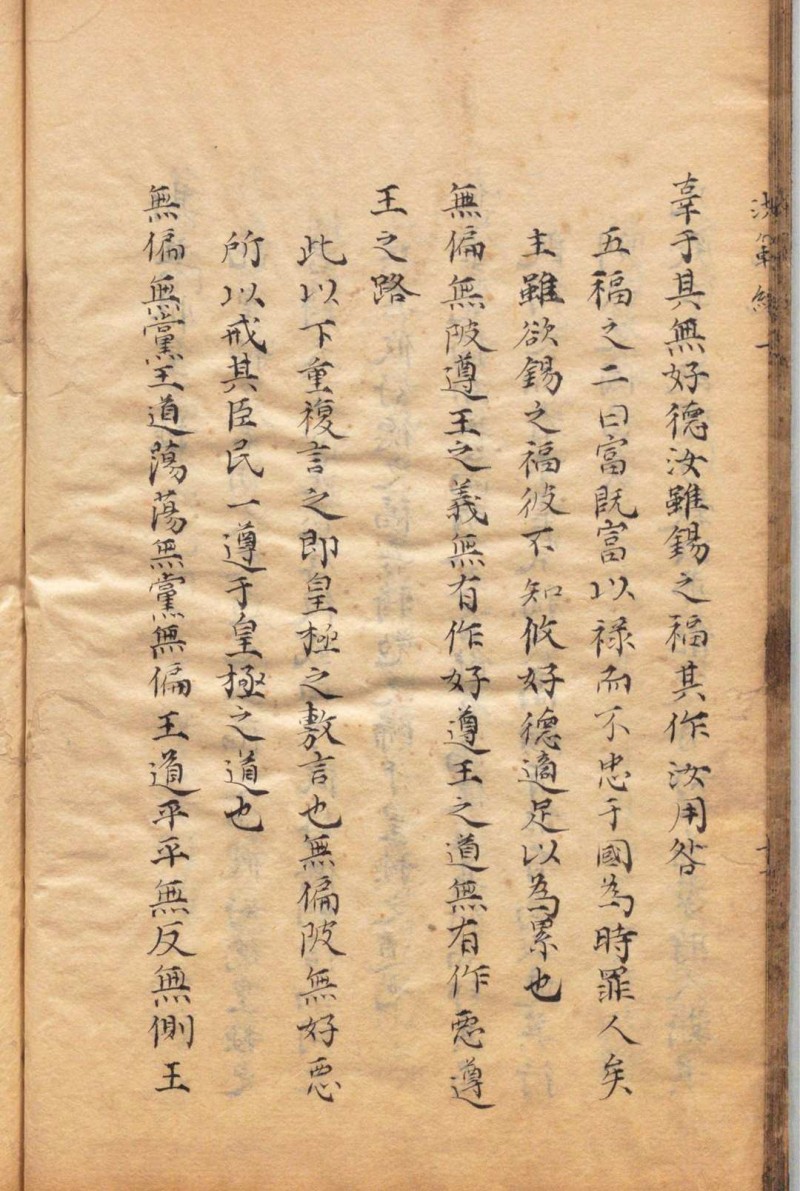 辜于其無好德汝雖錫之福其作汝用咎
五福之二曰富既富以祿而不忠于國為時罪人矣
主雖欲錫之福彼不知攸好德適足以為累也
無偏無陂遵王之義無有作好遵王之道無有作惡遵
王之路
此以下重複言之即皇極之敷言也無偏陂無好惡
所以戒其臣民一遵于皇極之道也
無偏無黨王道蕩蕩無黨無偏王道平平無反無側王